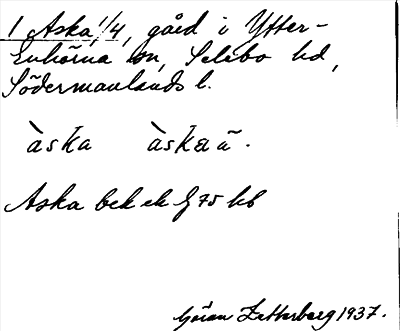 1 Aska, 1/4, gård i Ytter-
Enhörna sn, Selebo hd,
Södermanlands l.
àska àskaä.
Aska bek ek J 75 kb
Göran Zetterberg 1937.